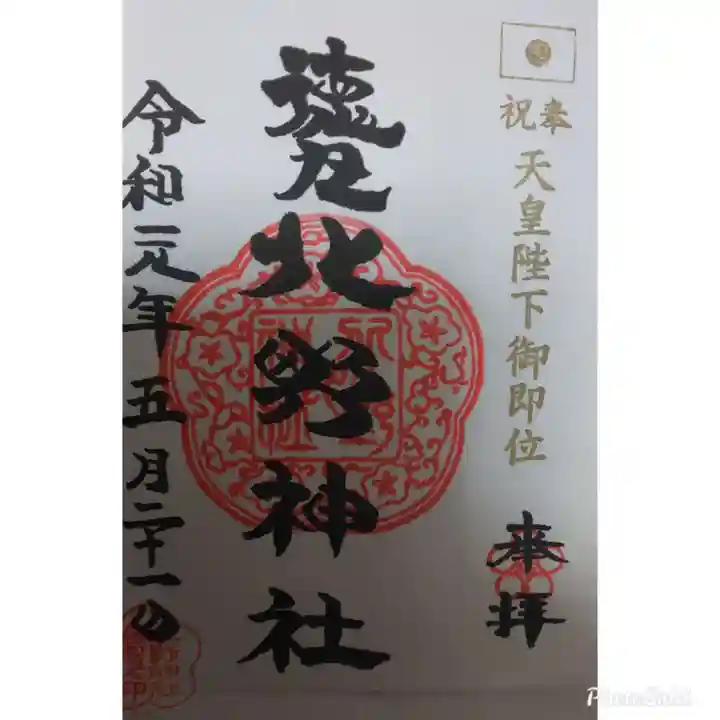 奉祝
天皇陛下御即位
奉拝
徳丸北野神社
令和元年五月二十一日